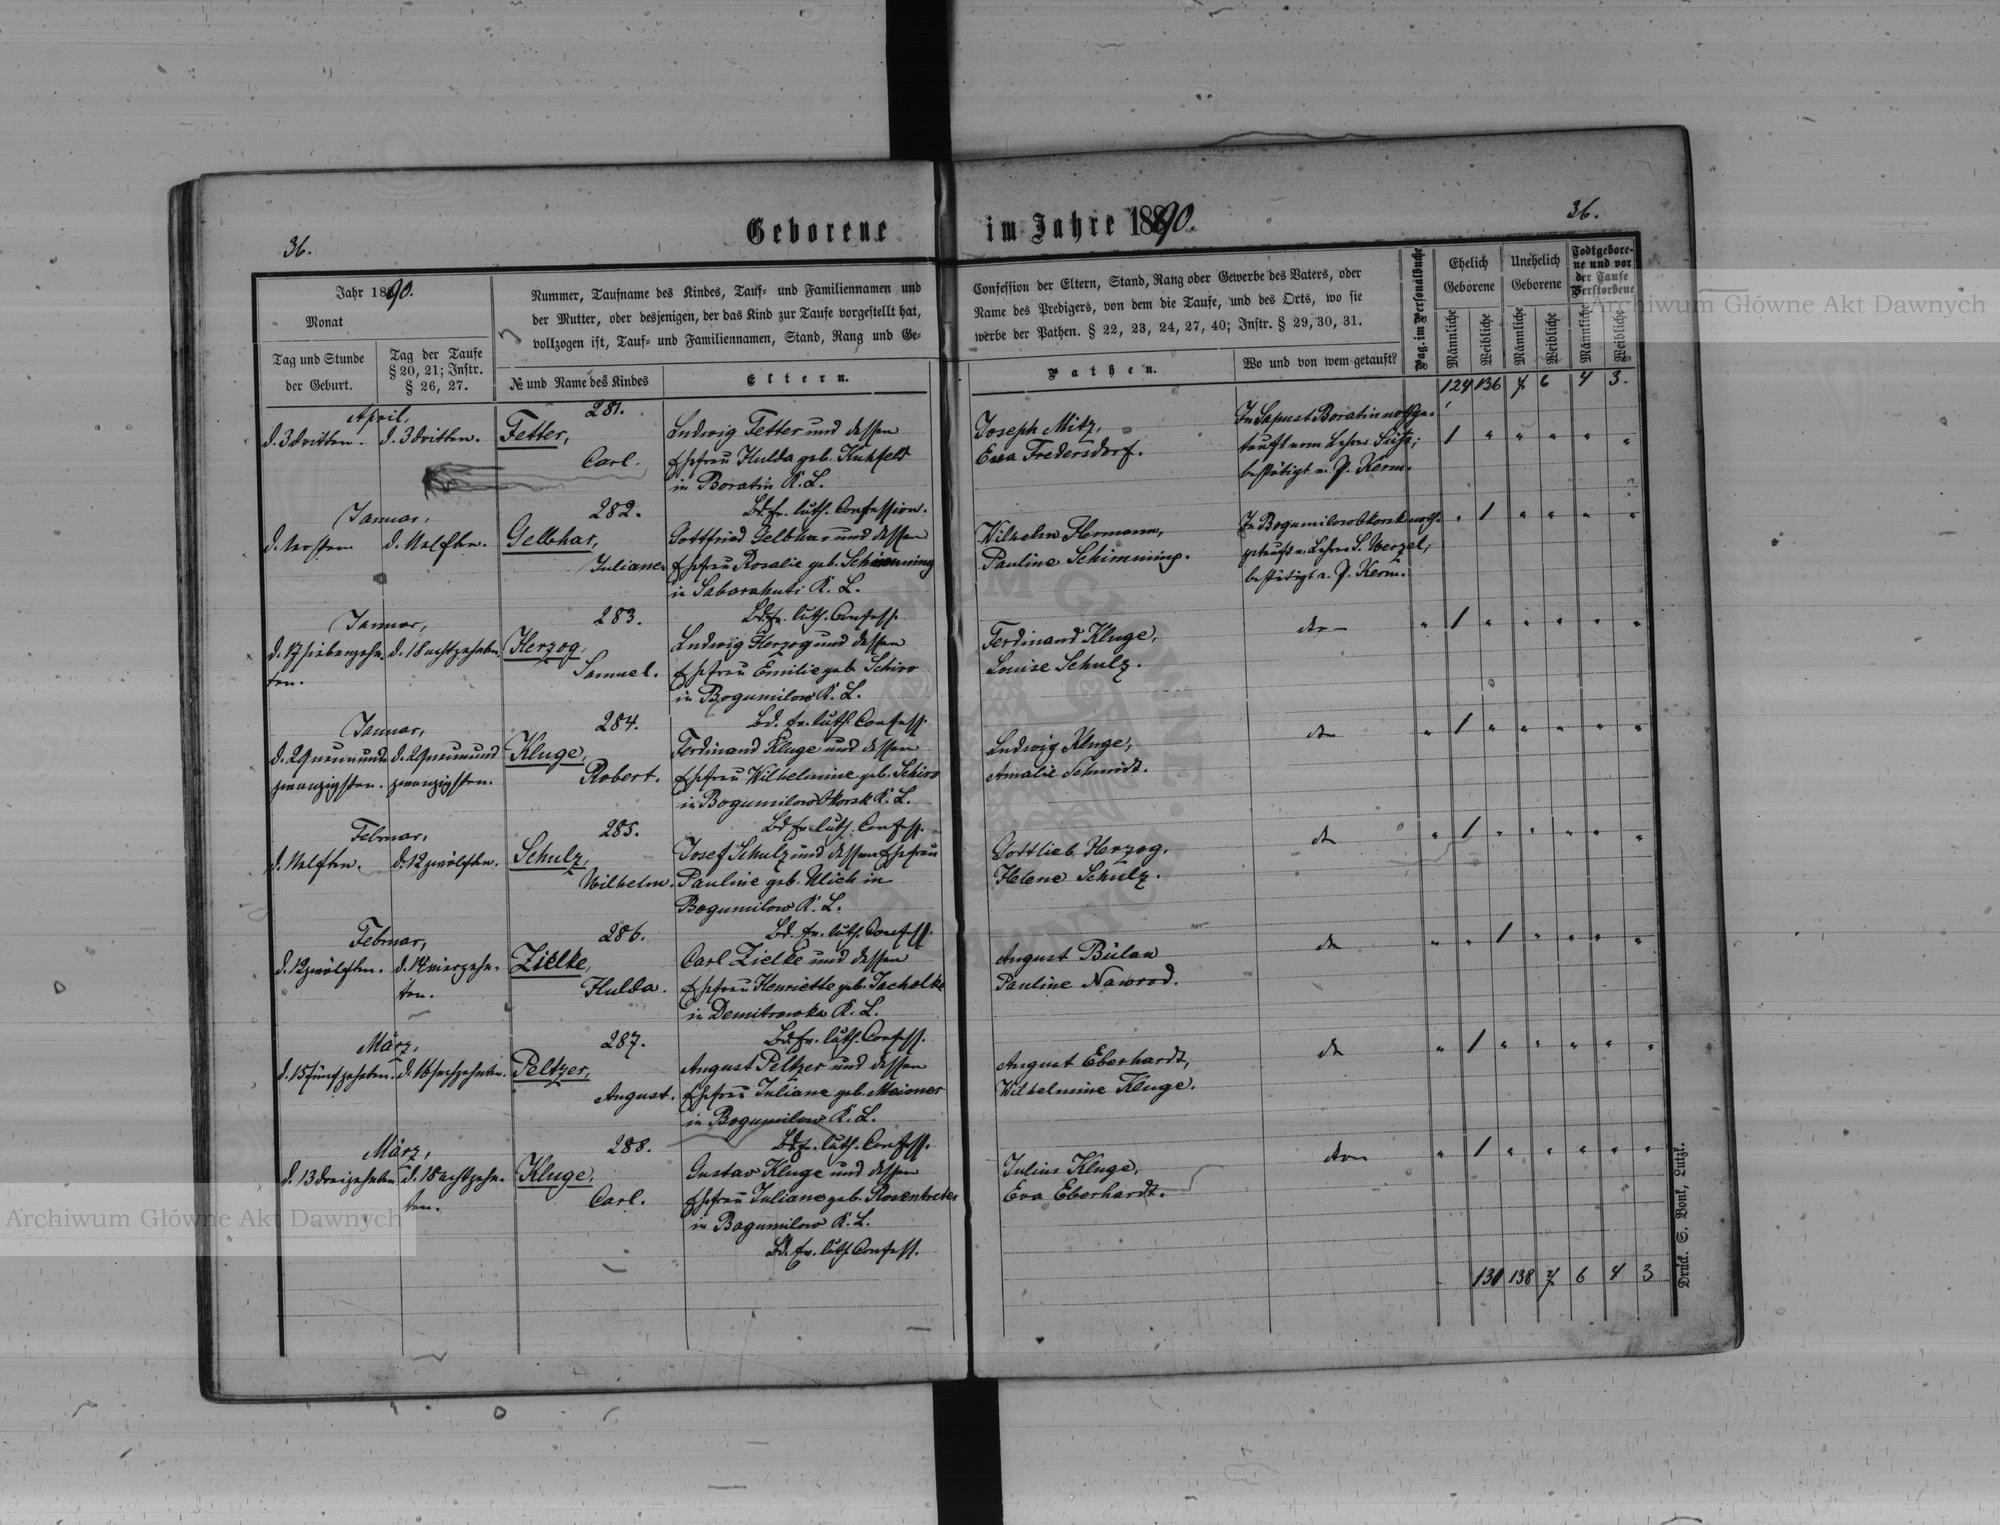 36.
Geborene im Jahre 1890.
36.
Jahr 1890.
Monat
Tag und Stunde
der Geburt.
Tag der Taufe
§ 20, 21; Instr.
§ 26, 27.
Nummer, Taufname des Kindes, Tauf- und Familiennamen und
der Mutter, oder desjenigen, der das Kind zur Taufe vorgestellt hat,
vollzogen ist, Tauf- und Familiennamen, Stand, Rang und Ge-
№ und Name des Kindes
Eltern.
Confession der Eltern, Stand, Rang oder Gewerbe des Vaters, oder
Name des Predigers, von dem die Taufe, und des Orts, wo sie
werbe der Pathen. § 22, 23, 24, 27, 40; Instr. § 29, 30, 31.
Pathen.
Wo und von wem getauft?
Pag. im Personalbuche
Ehelich
Geborene
Unehelich
Geborene
Todtgebore-
ne und vor
der Taufe
Verstorbene
Männliche
Weibliche
Männliche
Weibliche
Männliche
Weibliche
124 136 7 6 4 3.
April,
d. 3 dritten. d. 3 dritten.
281.
Fetter,
Carl.
Ludwig Fetter und dessen
Ehefrau Hulda geb. Kuhfeld
in Boratin K. L.
Bd. ev. luth. Confession.
Joseph Mitz,
Eva Fredersdorf.
In Sapust Boratin nothge-
tauft vom Lehrer
bestätigt v. P. Kerm.
1 " " " " "
Januar,
d. ersten d. 11 elften.
282.
Gelbhar,
Juliane
Gottfried Gelbhar und dessen
Ehefrau Rosalie geb. Schimming
in K. L.
Bd. ev. luth. Confess.
Wilhelm Hermann,
Pauline Schimming.
In nothgetauft v. Lehrer S. Werzel,
bestätigt v. P. Kerm.
" 1 " " " "
Januar,
d. 17 siebenzehn-
ten.
d. 18 achtzehnten.
283.
Herzog,
Samuel.
Ludwig Herzog und dessen
Ehefrau Emilie geb. Schiro
in Bogumilow K. L.
Bd. ev. luth. Confess.
Ferdinand Kluge,
Louise Schulz.
" 1 " " " " "
Januar,
d. 29 neunund-
zwanzigsten.
d. 29 neunund
zwanzigsten.
284.
Kluge,
Robert.
Ferdinand Kluge und dessen
Ehefrau Wilhelmine geb. Schiro
in K. L.
Bd. ev. luth. Confess.
Ludwig Kluge,
Amalie Schmidt.
" 1 " " " " "
Februar,
d. 11 elften. d. 12 zwölften.
285.
Schulz,
Wilhelm.
Josef Schulz und dessen Ehefrau
Pauline geb. Ulich in
Bogumilow K. L.
Bd. ev. luth. Confess.
Gottlieb Herzog,
Helene Schulz.
" 1 " " " " "
Februar,
d. 12 zwölften. d. 14 vierzehn-
ten.
286.
Zielke,
Hulda.
Carl Zielke und dessen
Ehefrau Henriette geb. Jacholke
in Demitrowka K. L.
Bd. ev. luth. Confess.
August Bülau
Pauline Nawrod.
" " 1 " " " "
März,
d. 15 fünfzehnten. d. 16 sechzehnten.
287.
Peltzer,
August.
August Peltzer und dessen
Ehefrau Juliane geb. Meioner
in Bogumilow K. L.
Bd. ev. luth. Confess.
August Eberhardt,
Wilhelmine Kluge.
" 1 " " " " "
März,
d. 13 dreizehnten d. 18 achtzehn-
ten.
288.
Kluge,
Carl.
Gustav Kluge und dessen
Ehefrau Juliane geb. Rosentreter
in Bogumilow K. L.
Bd. ev. luth. Confess.
Julius Kluge,
Eva Eberhardt.
" 1 " " " " "
130 138 7 6 4 3
Druck. S. Bonk, Lutzk.
Archiwum Główne Akt Dawnych
Archiwum Główne Akt Dawnych